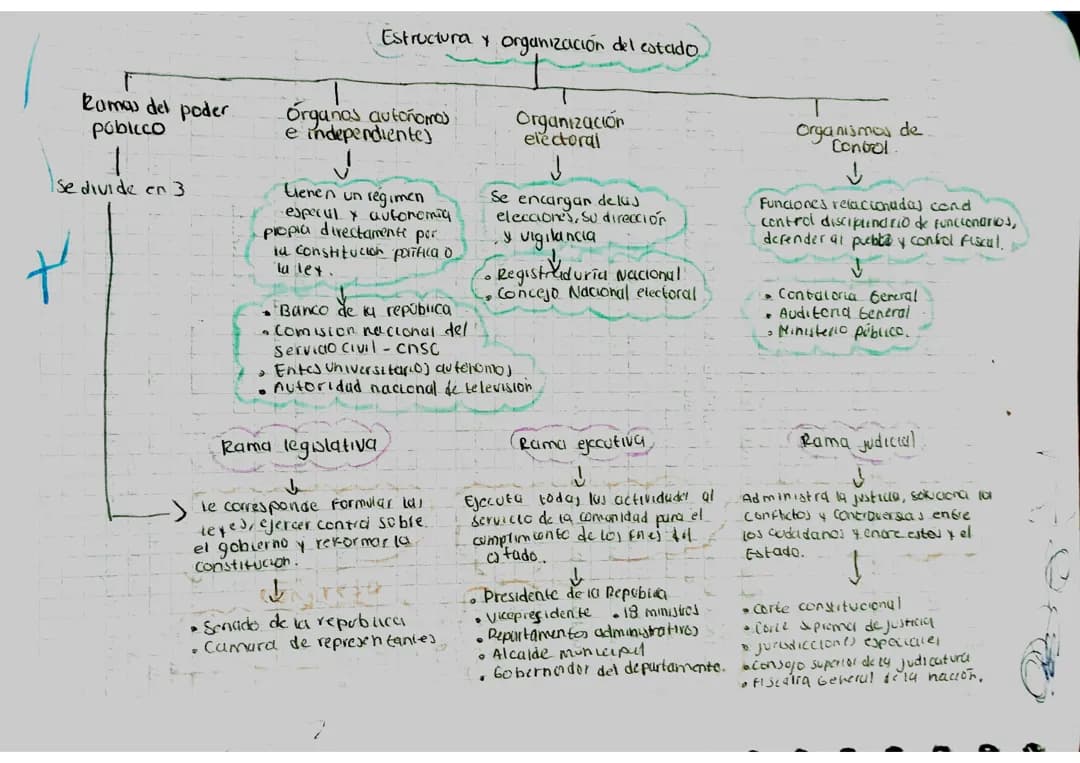 Estructura y organización del estado
Ramas del poder
público
Se divide en 3
Órganos autónomos
e independientes
tienen un régimen
especial y autonomía
propia directamente por
la constitución política o
la ley.
• Banco de la república
• Comision nacional del
Servicio Civil - CNSC
• Entes universitarios autonomos
• Autoridad nacional de television
Organización
electoral
Se encargan de las
elecciones, su dirección
y vigilancia
• Registraduría Nacional
• Concejo Nacional electoral
Organismos de
Control
Funciones relacionadas cond
control disciplinario de funcionarios,
defender al pueblo y control fiscal.
• Contraloria General
• Auditoria General
• Ministerio público.
Rama legislativa
le corresponde formular las
leyes, ejercer control sobre
el gobierno y reformar la
constitucion.
Congreso
• Senado de la republica
• Camara de representantes
Rama ejecutiva
Ejecuta todas las actividades al
servicio de la comunidad para el
cumplimiento de los fines del
estado.
• Presidente de la Republica
• Vicepresidente • 18 ministros
• Departamentos administrativos
• Alcalde municipal
• Gobernador del departamento.
Rama judicial
Administra la justicia, soluciona los
conflictos y controversias entre
los ciudadanos y entre estos y el
Estado.
• Corte constitucional
• Corte suprema de justicia
• jurisdicciones especiales
• Consejo superior de la judicatura
• Fiscalia General de la nación.